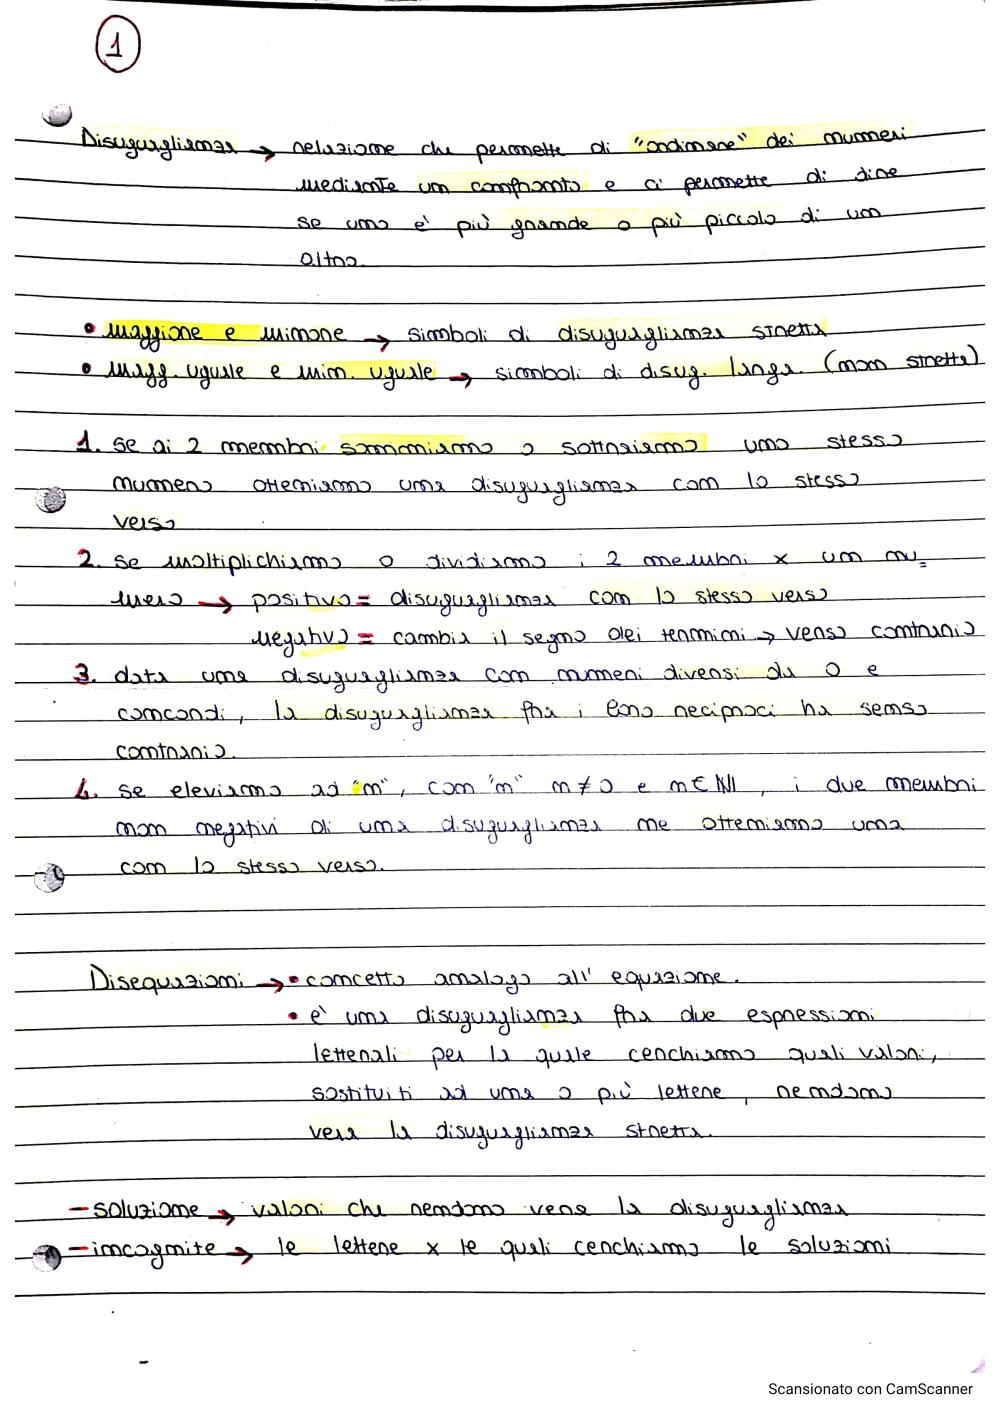 1
Disuguaglianza → relazione che permette di "ordinare" dei numeri
mediante un confronto e ci permette di dire
se uno è più grande o più piccolo di un
altro.
• maggiore e minore → simboli di disuguaglianza stretta
• magg. uguale e min. uguale → simboli di disug. larga. (non stretta)
1. se ai 2 membri sommiamo o sottraiamo uno stesso
numero otteniamo una disuguaglianza con lo stesso
verso
2. se moltiplichiamo o dividiamo i 2 membri x un nu=
mero → positivo = disuguaglianza con lo stesso verso
negativo = cambia il segno dei termini → verso contrario
3. data una disuguaglianza con numeri diversi da 0 e
concordi, la disuguaglianza fra i loro reciproci ha senso
contrario.
4. se eleviamo ad "n", con "n" n ≠ 0 e n ∈ ℕ, i due membri
non negativi di una disuguaglianza ne otteniamo una
con lo stesso verso.
Disequazioni → • concetto analogo all' equazione.
• è una disuguaglianza fra due espressioni
letterali per la quale cerchiamo quali valori,
sostituiti ad una o più lettere, rendono
vera la disuguaglianza stretta.
- soluzione → valori che rendono vera la disuguaglianza
- incognite → le lettere x le quali cerchiamo le soluzioni
Scansionato con CamScanner